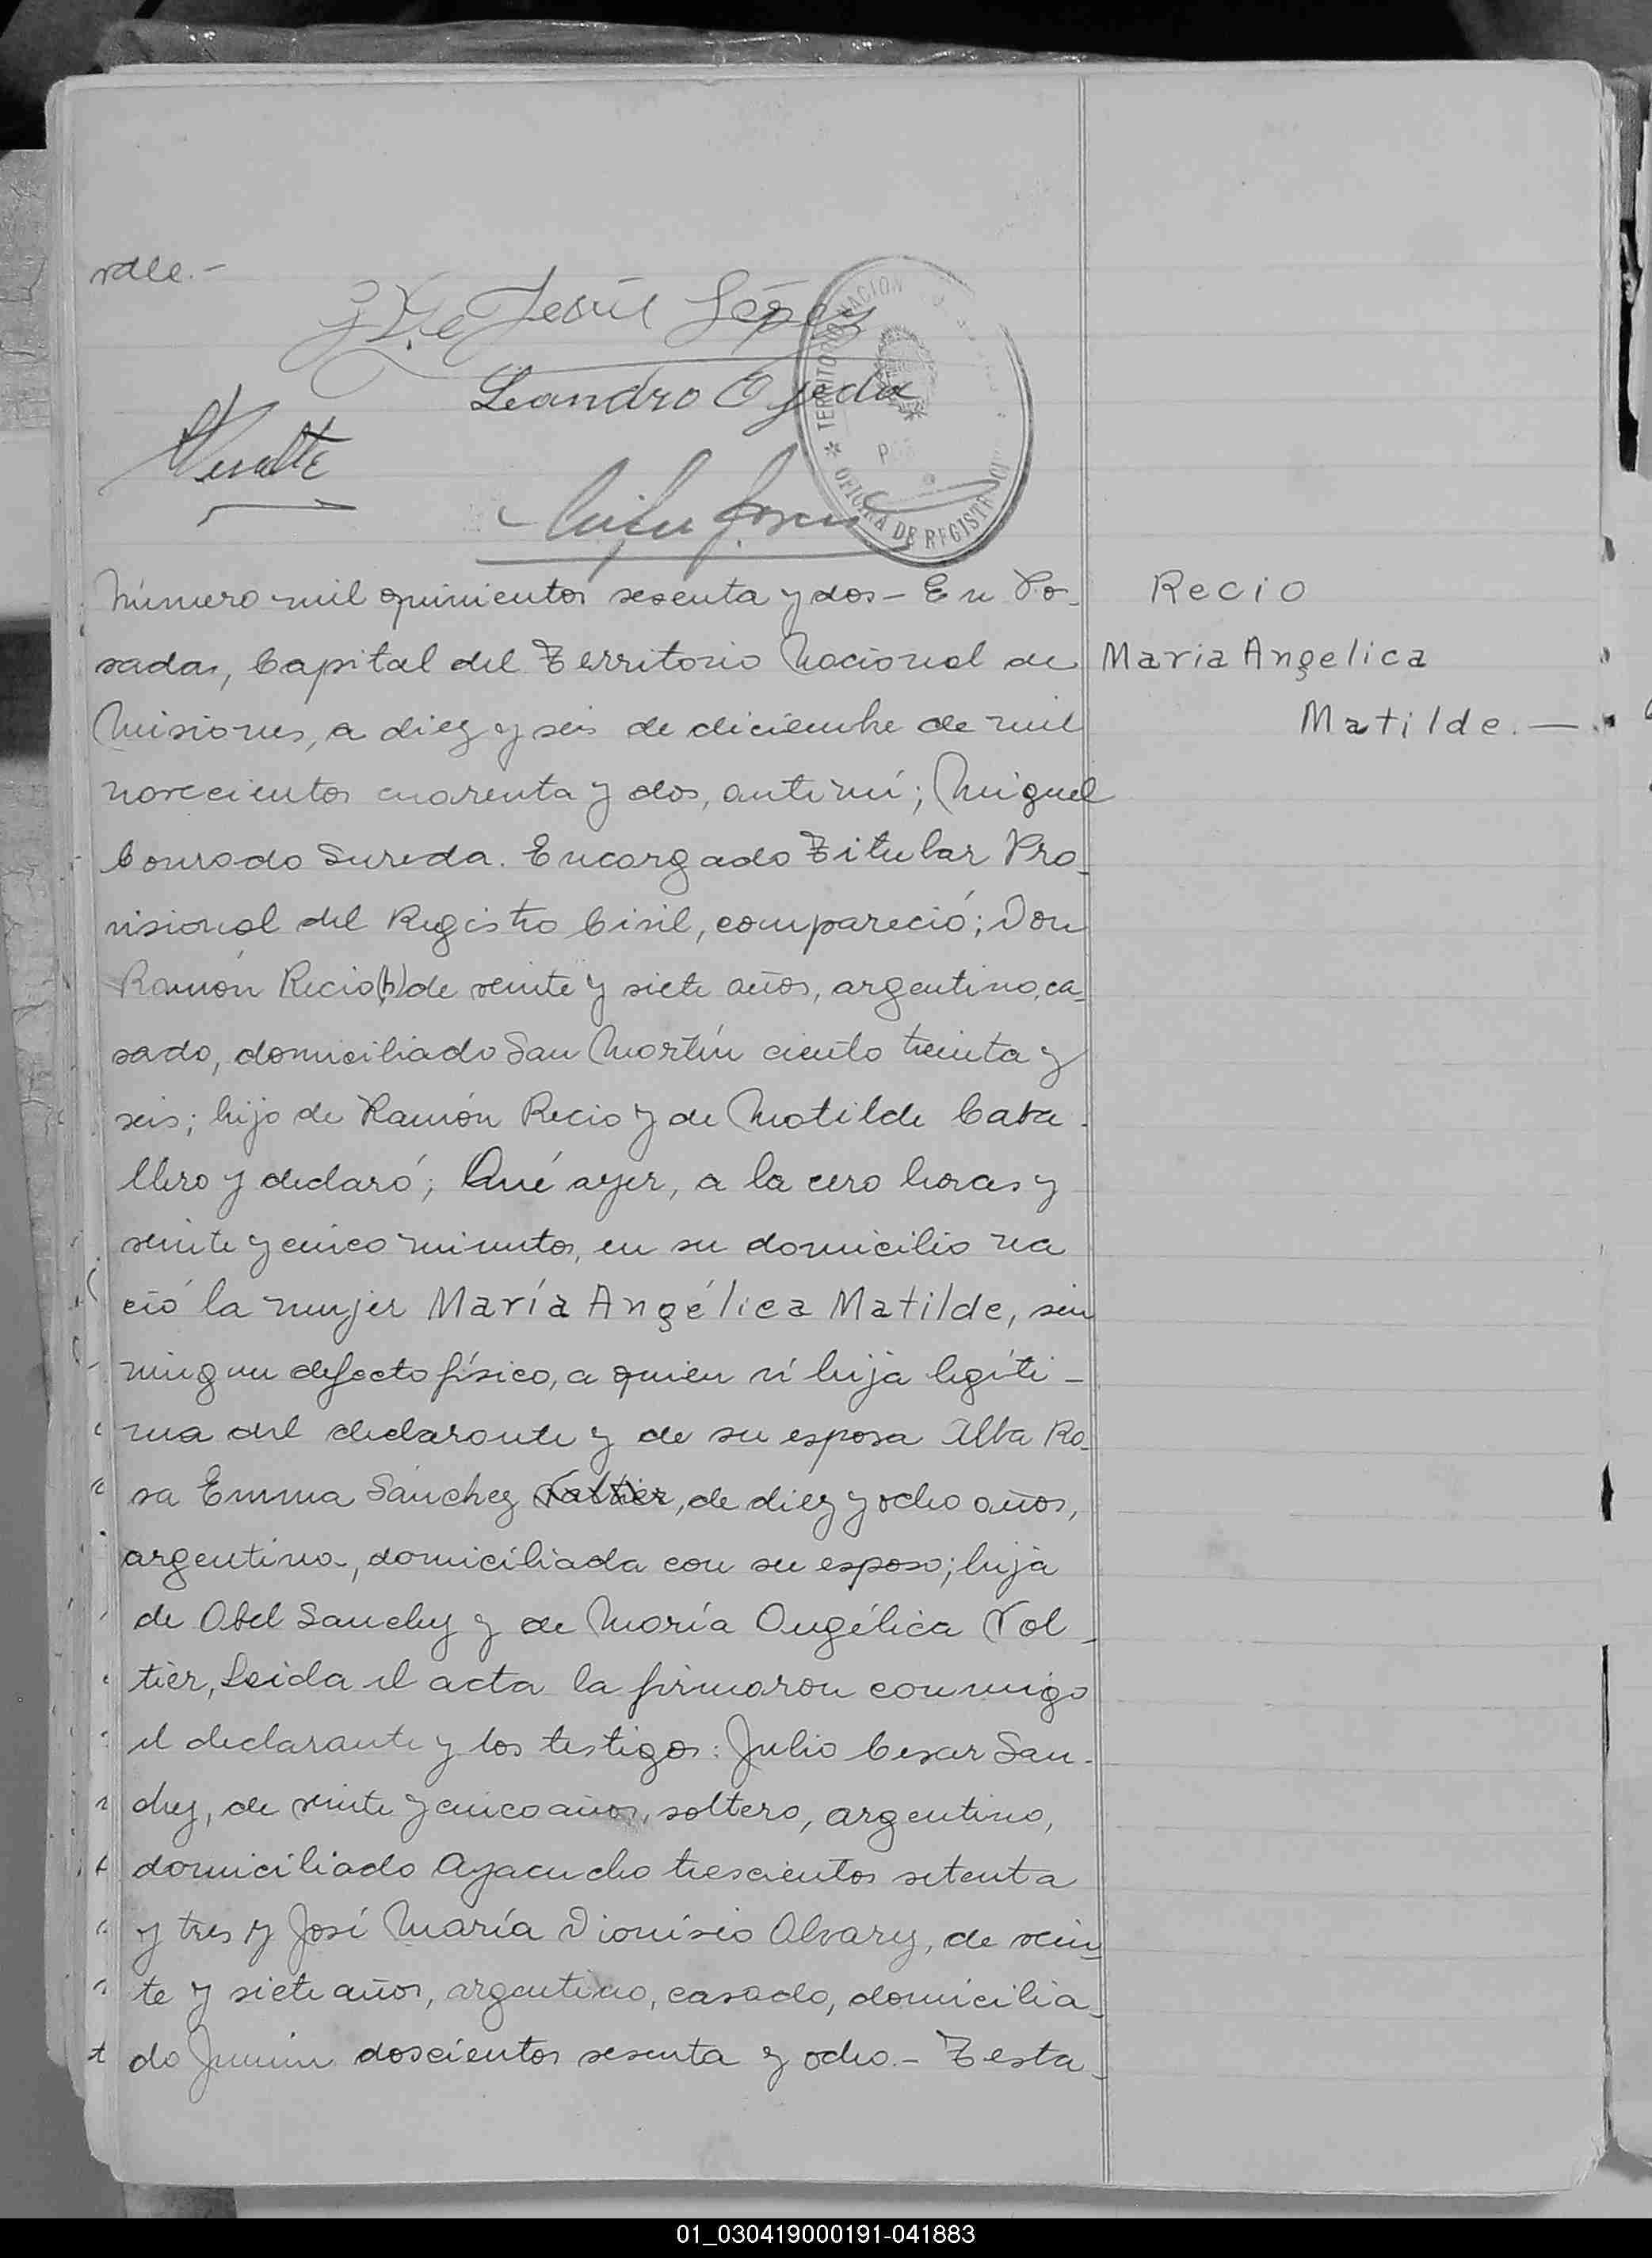 rdle.-
Jesús López
Leandro Ojeda
TERRITORIO NACION
OFICINA DE REGISTR
Número mil quinientos sesenta y dos- En Po-
sadas, Capital del Territorio Nacional de
Misiones, a diez y seis de diciembre de mil
novecientos cuarenta y dos, ante mí; Miguel
Conrado Sureda. Encargado Titular Pro-
visional del Registro Civil, compareció; Don
Ramón Recio(h) de veinte y siete años, argentino, ca-
sado, domiciliado San Martín ciento treinta y
seis; hijo de Ramón Recio y de Matilde Caba-
llero y declaró; Qué ayer, a la cero horas y
veinte y cinco minutos, en su domicilio na
ció la mujer María Angélica Matilde, sin
ningun defecto físico, a quien ví hija legíti-
ma del declarante y de su esposa Alba Ro-
sa Emma Sánchez Valtier, de diez y ocho años,
argentina, domiciliada con su esposo; hija
de Abel Sanchez y de María Angélica Vol-
tier, Leida el acta la firmaron conmigo
el declarante y los testigos: Julio Cesar San-
chez, de veinte y cinco años, soltero, argentino,
domiciliado Ayacucho trescientos setenta
y tres y José María Dionisio Alvarez, de vein-
te y siete años, argentino, casado, domicilia-
do Junin doscientos sesenta y ocho.- Testa-
Recio
Maria Angelica
Matilde.—
01_030419000191-041883